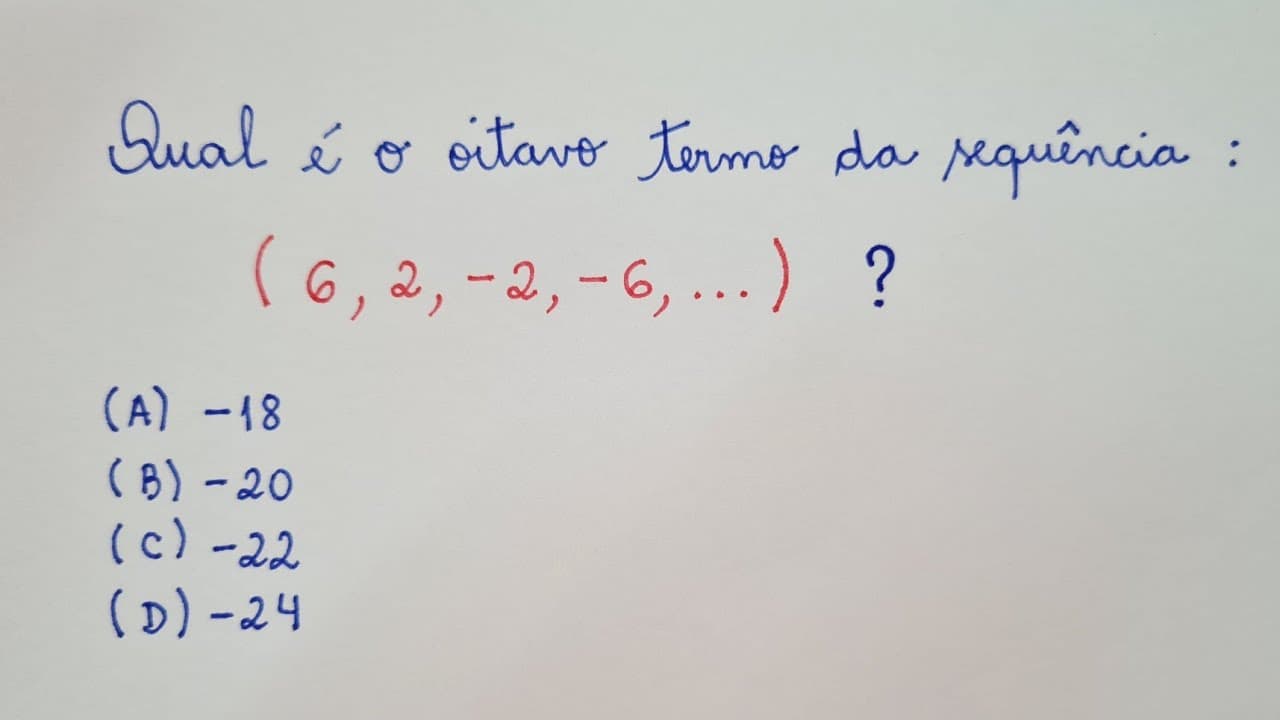 Qual é o oitavo termo da sequência :
( 6, 2, -2, -6, ... ) ?
(A) -18
(B) -20
(C) -22
(D) -24